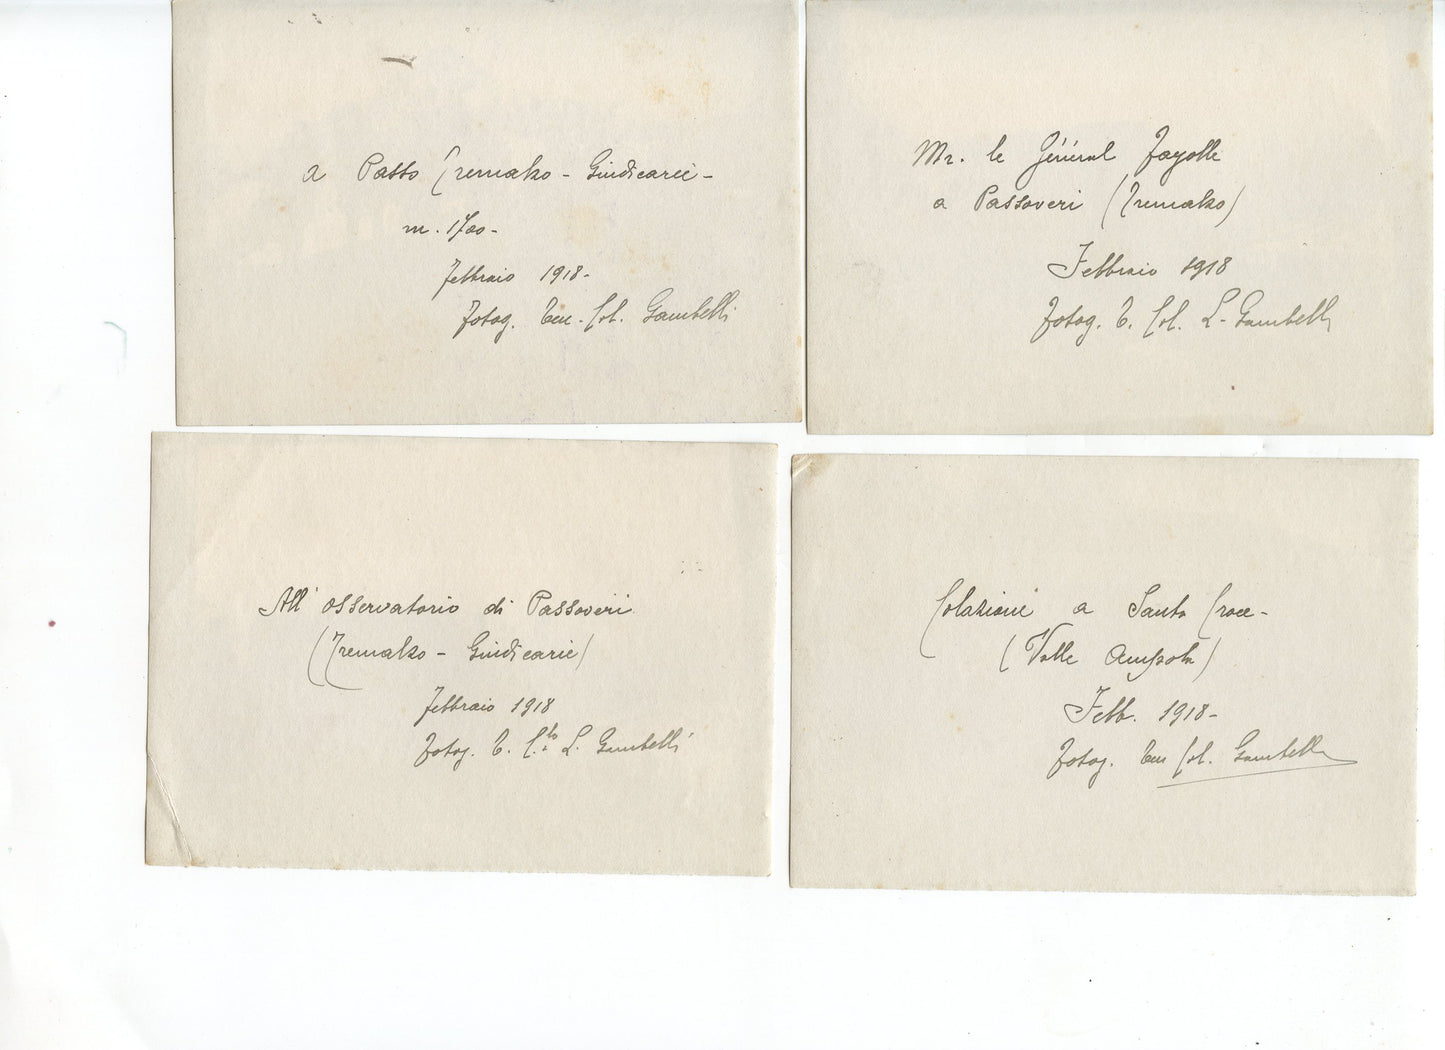 a Passo Tremalzo - Giudicarie -
m. 1700 -
Febbraio 1918 -
Fotog. Ten. Col. Gambelli
Mr. le Général Fayolle
a Passoveri (Tremalzo)
Febbraio 1918
Fotog. T. Col. L. Gambelli
All' osservatorio di Passoveri
(Tremalzo - Giudicarie)
Febbraio 1918
Fotog. T. C.llo L. Gambelli
Colazione a Santa Croce -
(Valle Ampola)
Febb. 1918 -
Fotog. Ten Col. Gambelli